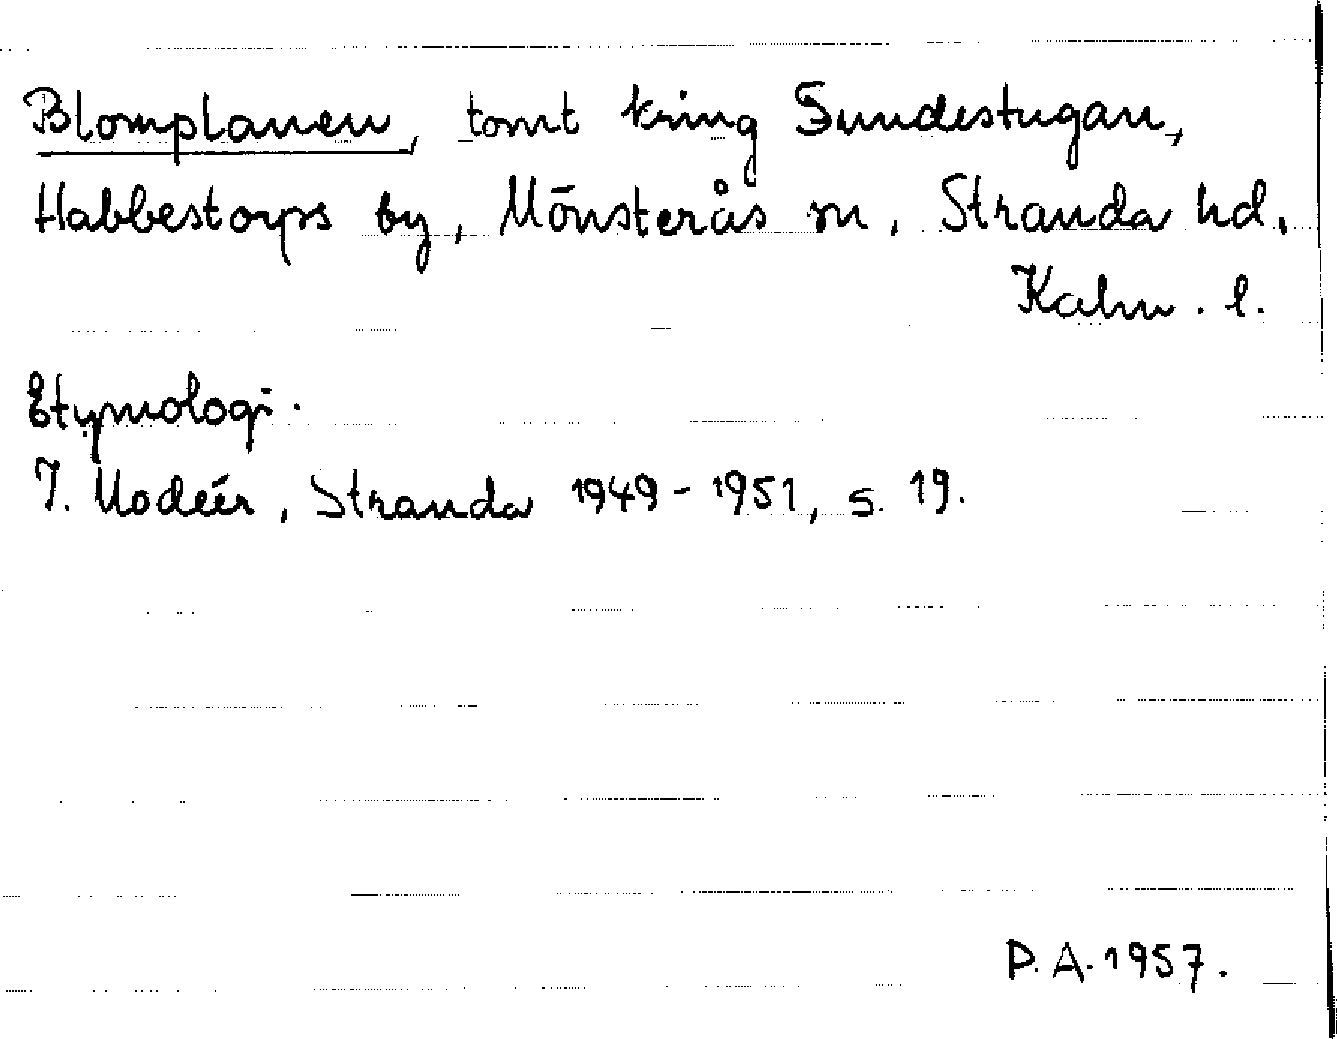 Blomplanen, tomt kring Sundestugan,
Habbestorps by, Mönsterås sn, Stranda hd,
Kalm. l.
Etymologi.
I. Modéer, Stranda 1949-1951, s. 19.
P.A. 1957.